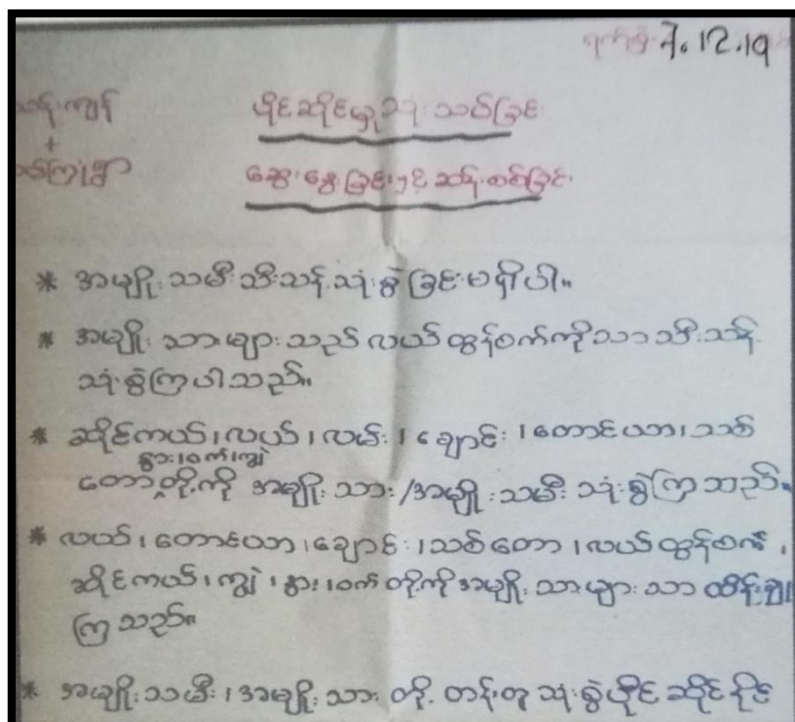 ရက်စွဲ 7.12.19
သန်းကျွန်
+
ပိုင်ဆိုင်မှုသုံးသပ်ခြင်း
ဆွေးနွေးခြင်းနှင့်ဆန်းစစ်ခြင်း
* အမျိုးသမီးသီးသန့်သုံးစွဲခြင်းမရှိပါ။
* အမျိုးသားများသည် လယ်ထွန်စက်ကိုသာသီးသန့်
သုံးစွဲကြပါသည်။
* ဆိုင်ကယ်၊ လယ်၊ လမ်း၊ ချောင်း၊ တောင်ယာ၊ သစ်
နွား၊ ဝက်၊ ကျွဲ
တောတို့ကို အမျိုးသား/အမျိုးသမီး သုံးစွဲကြသည်။
* လယ်၊ တောင်ယာ၊ ချောင်း၊ သစ်တော၊ လယ်ထွန်စက်၊
ဆိုင်ကယ်၊ ကျွဲ၊ နွား၊ ဝက် တို့ကိုအမျိုးသားများသာ ထိန်းချုပ်
ကြသည်။
* အမျိုးသမီး၊ အမျိုးသား တို့ တန်းတူသုံးစွဲပိုင်ဆိုင်နိုင်